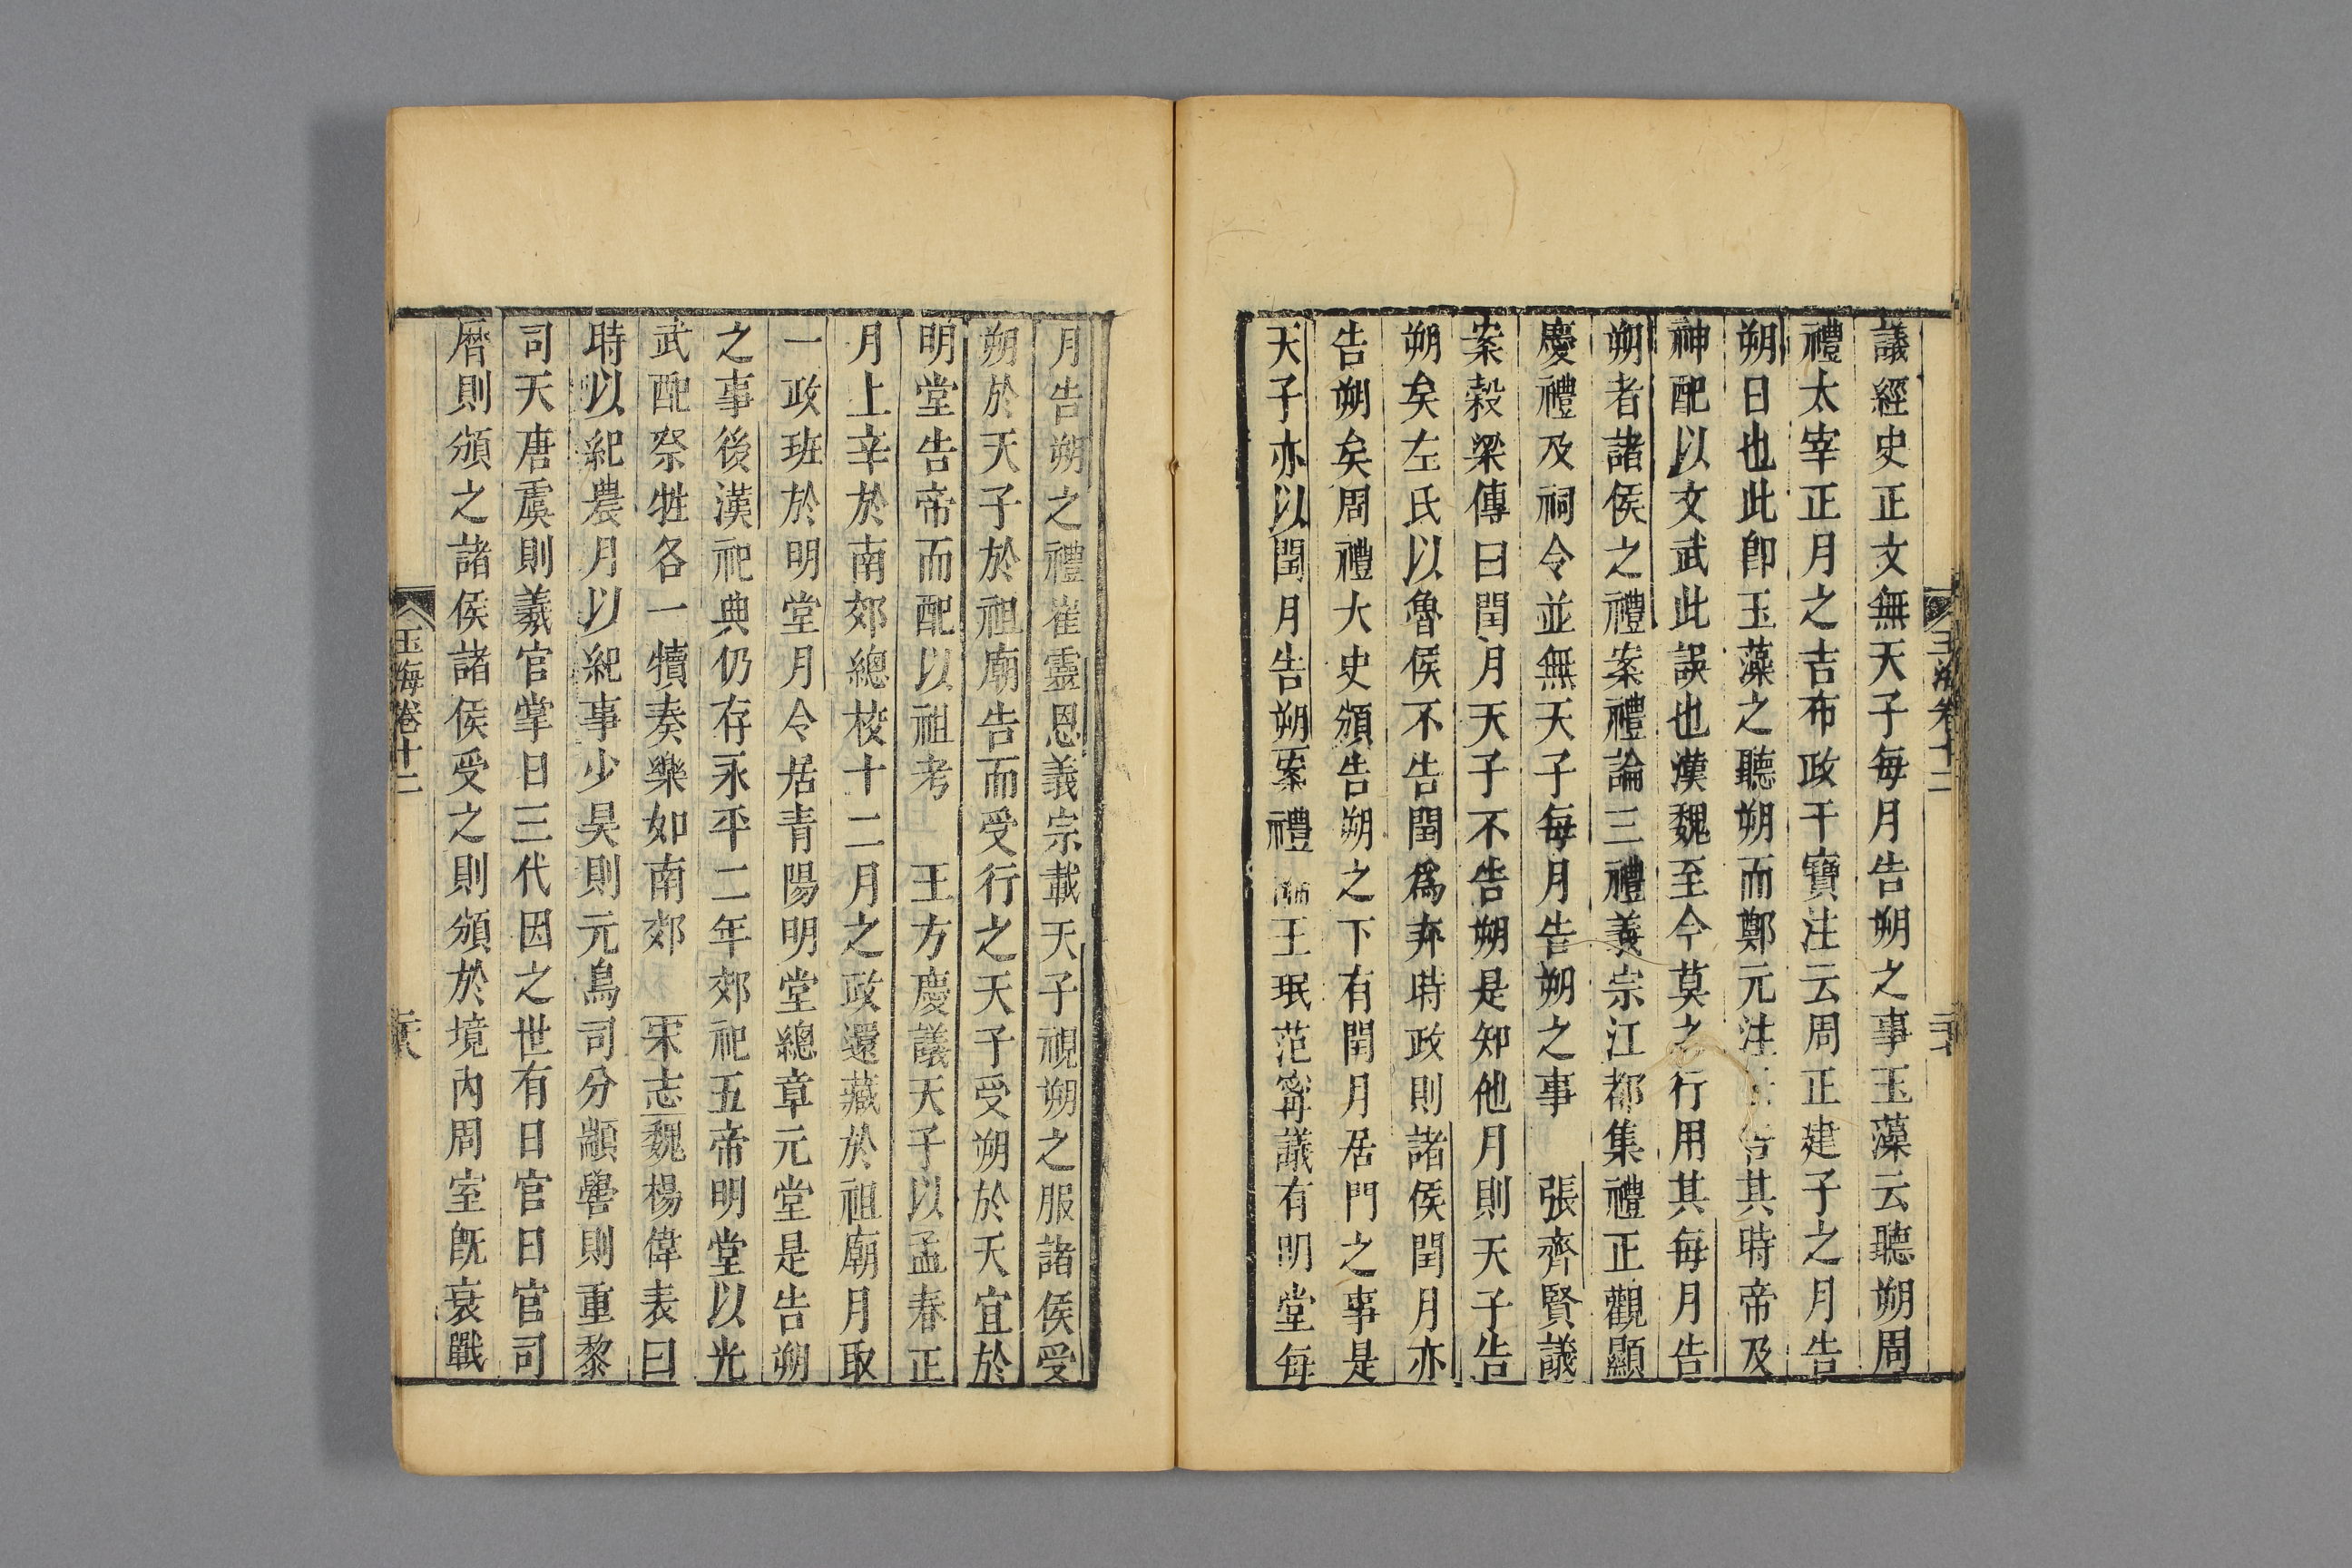 議經史正文無天子每月告朔之事玉藻云聽朔周
禮太宰正月之吉布政干寶注云周正建子之月告
朔日也此卽玉藻之聽朔而鄭元注告其時帝及
神配以文武此誤也漢魏至今莫之行用其每月告
朔者諸侯之禮案禮論三禮義宗江都集禮正觀顯
慶禮及祠令並無天子每月告朔之事 張齊賢議
案穀梁傳曰閏月天子不告朔是知他月則天子告
朔矣左氏以魯侯不告閏爲弃時政則諸侯閏月亦
告朔矣周禮大史頒告朔之下有閏月居門之事是
天子亦以閏月告朔案禮論王珉范甯議有明堂每
月告朔之禮崔靈恩義宗載天子視朔之服諸侯受
朔於天子於祖廟告而受行之天子受朔於天宜於
明堂告帝而配以祖考 王方慶議天子以孟春正
月上辛於南郊總校十二月之政還藏於祖廟月取
一政班於明堂月令居青陽明堂總章元堂是告朔
之事後漢祀典仍存永平二年郊祀五帝明堂以光
武配祭牲各一犢奏樂如南郊 宋志魏楊偉表曰
時以紀農月以紀事少昊則元鳥司分顓嚳則重黎
司天唐虞則羲官掌日三代因之世有日官日官司
曆則頒之諸侯諸侯受之則頒於境內周室旣衰戰
玉海卷十二